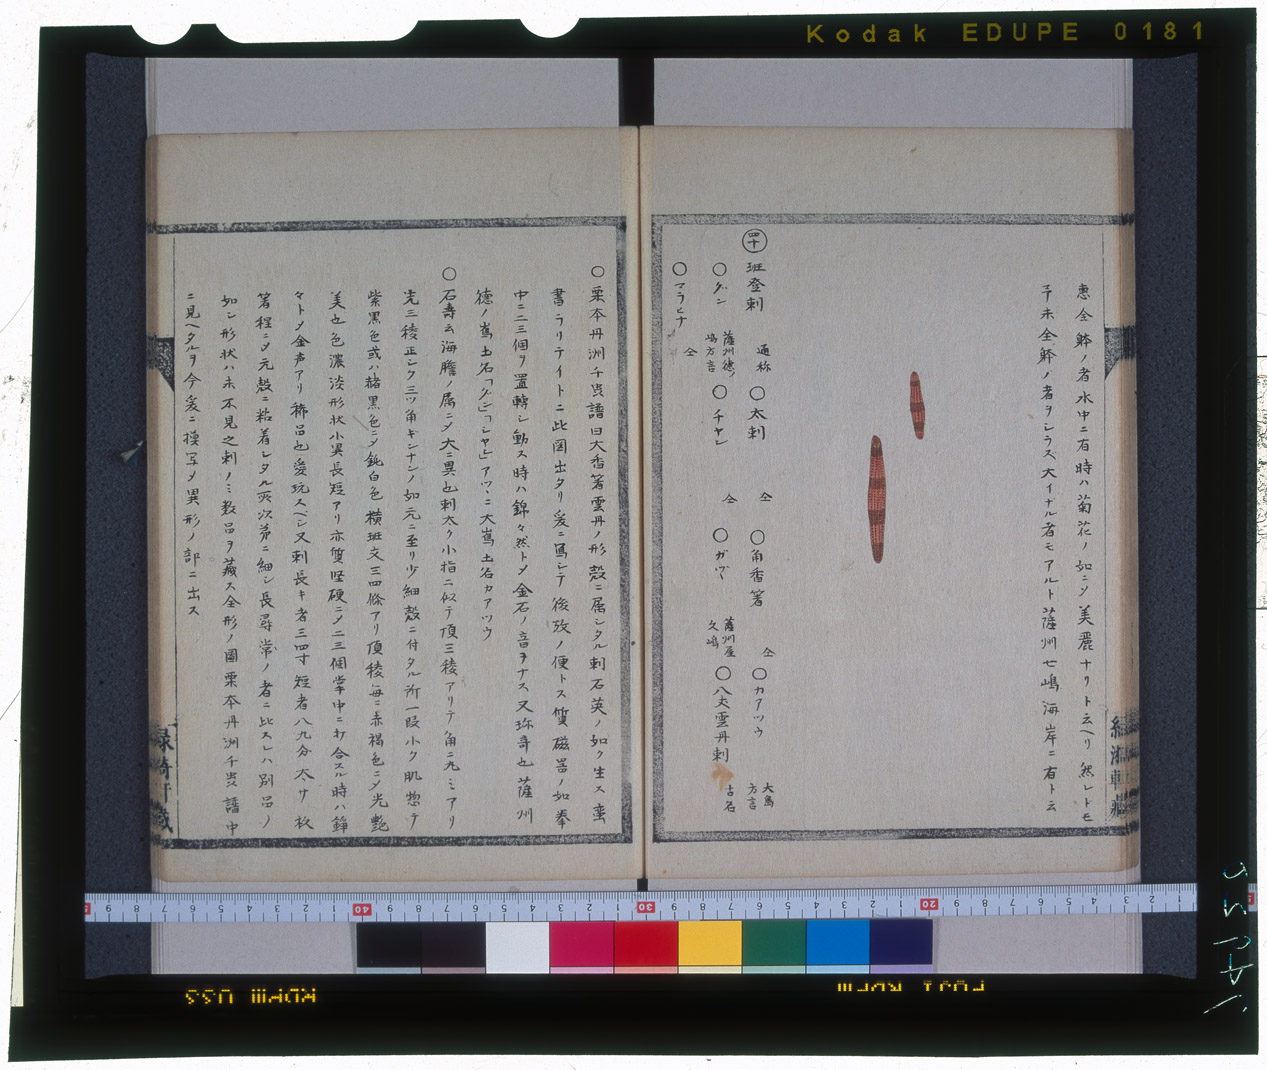 Kodak EDUPE 0181
惠全觧ノ者水中ニ有時ハ菊花ノ如ニメ美麗ナリト云ヘリ然レトモ
予未全觧ノ者ヲシラス大イナル者モアルト薩州七嶋海岸ニ有ト云
四十 班登刺 通称 〇太刺 仝 〇角香箸 仝 〇カアツウ 大島方言
〇グン 薩州徳ノ嶋方言 〇チヤン 仝 〇ガゼ 薩州屋久嶋 〇八丈雲丹刺 古名
〇マラヒナ 仝
〇栗本丹洲千蟲譜曰大香箸雲丹ノ形殻ニ属シタル刺石英ノ如ク生ス蛮
書ラリテイトニ此圖出タリ爰ニ寫シテ後攷ノ便トス質磁噐ノ如拳
中ニ二三個ヲ置轉シ動ス時ハ錦々然トメ金石ノ音ヲナス又珎奇也薩州
徳ノ嶌土名「グン」「シヤ」アツヽニ大嶌土名カアツウ
〇石壽云海膽ノ属ニメ大ニ異也刺太ク小指ニ似テ頂三稜アリテ角ニ九ミアリ
先三稜正シク三ツ角キンナンノ如元ニ至リ少細殻ニ付タル所一段小ク肌惣テ
紫黒色或ハ赭黒色ニメ鈍白色横班文三四條アリ頂稜毎ニ赤褐色ニメ光艶
美也色濃淡形状小異長短アリ亦質堅硬ニメ二三個掌中ニ打合スル時ハ錚
々トメ金声アリ稀品也愛玩スベシ又刺長キ者三四寸短者八九分太サ杦
箸程ニメ元殻ニ粘着シタル所次第ニ細シ長尋常ノ者ニ比スレハ別品ノ
如シ形状ハ未不見之刺ノミ数品ヲ藏ス全形ノ圖栗本丹洲千蟲譜中
ニ見ヘタルヲ今爰ニ模写メ異形ノ部ニ出ス